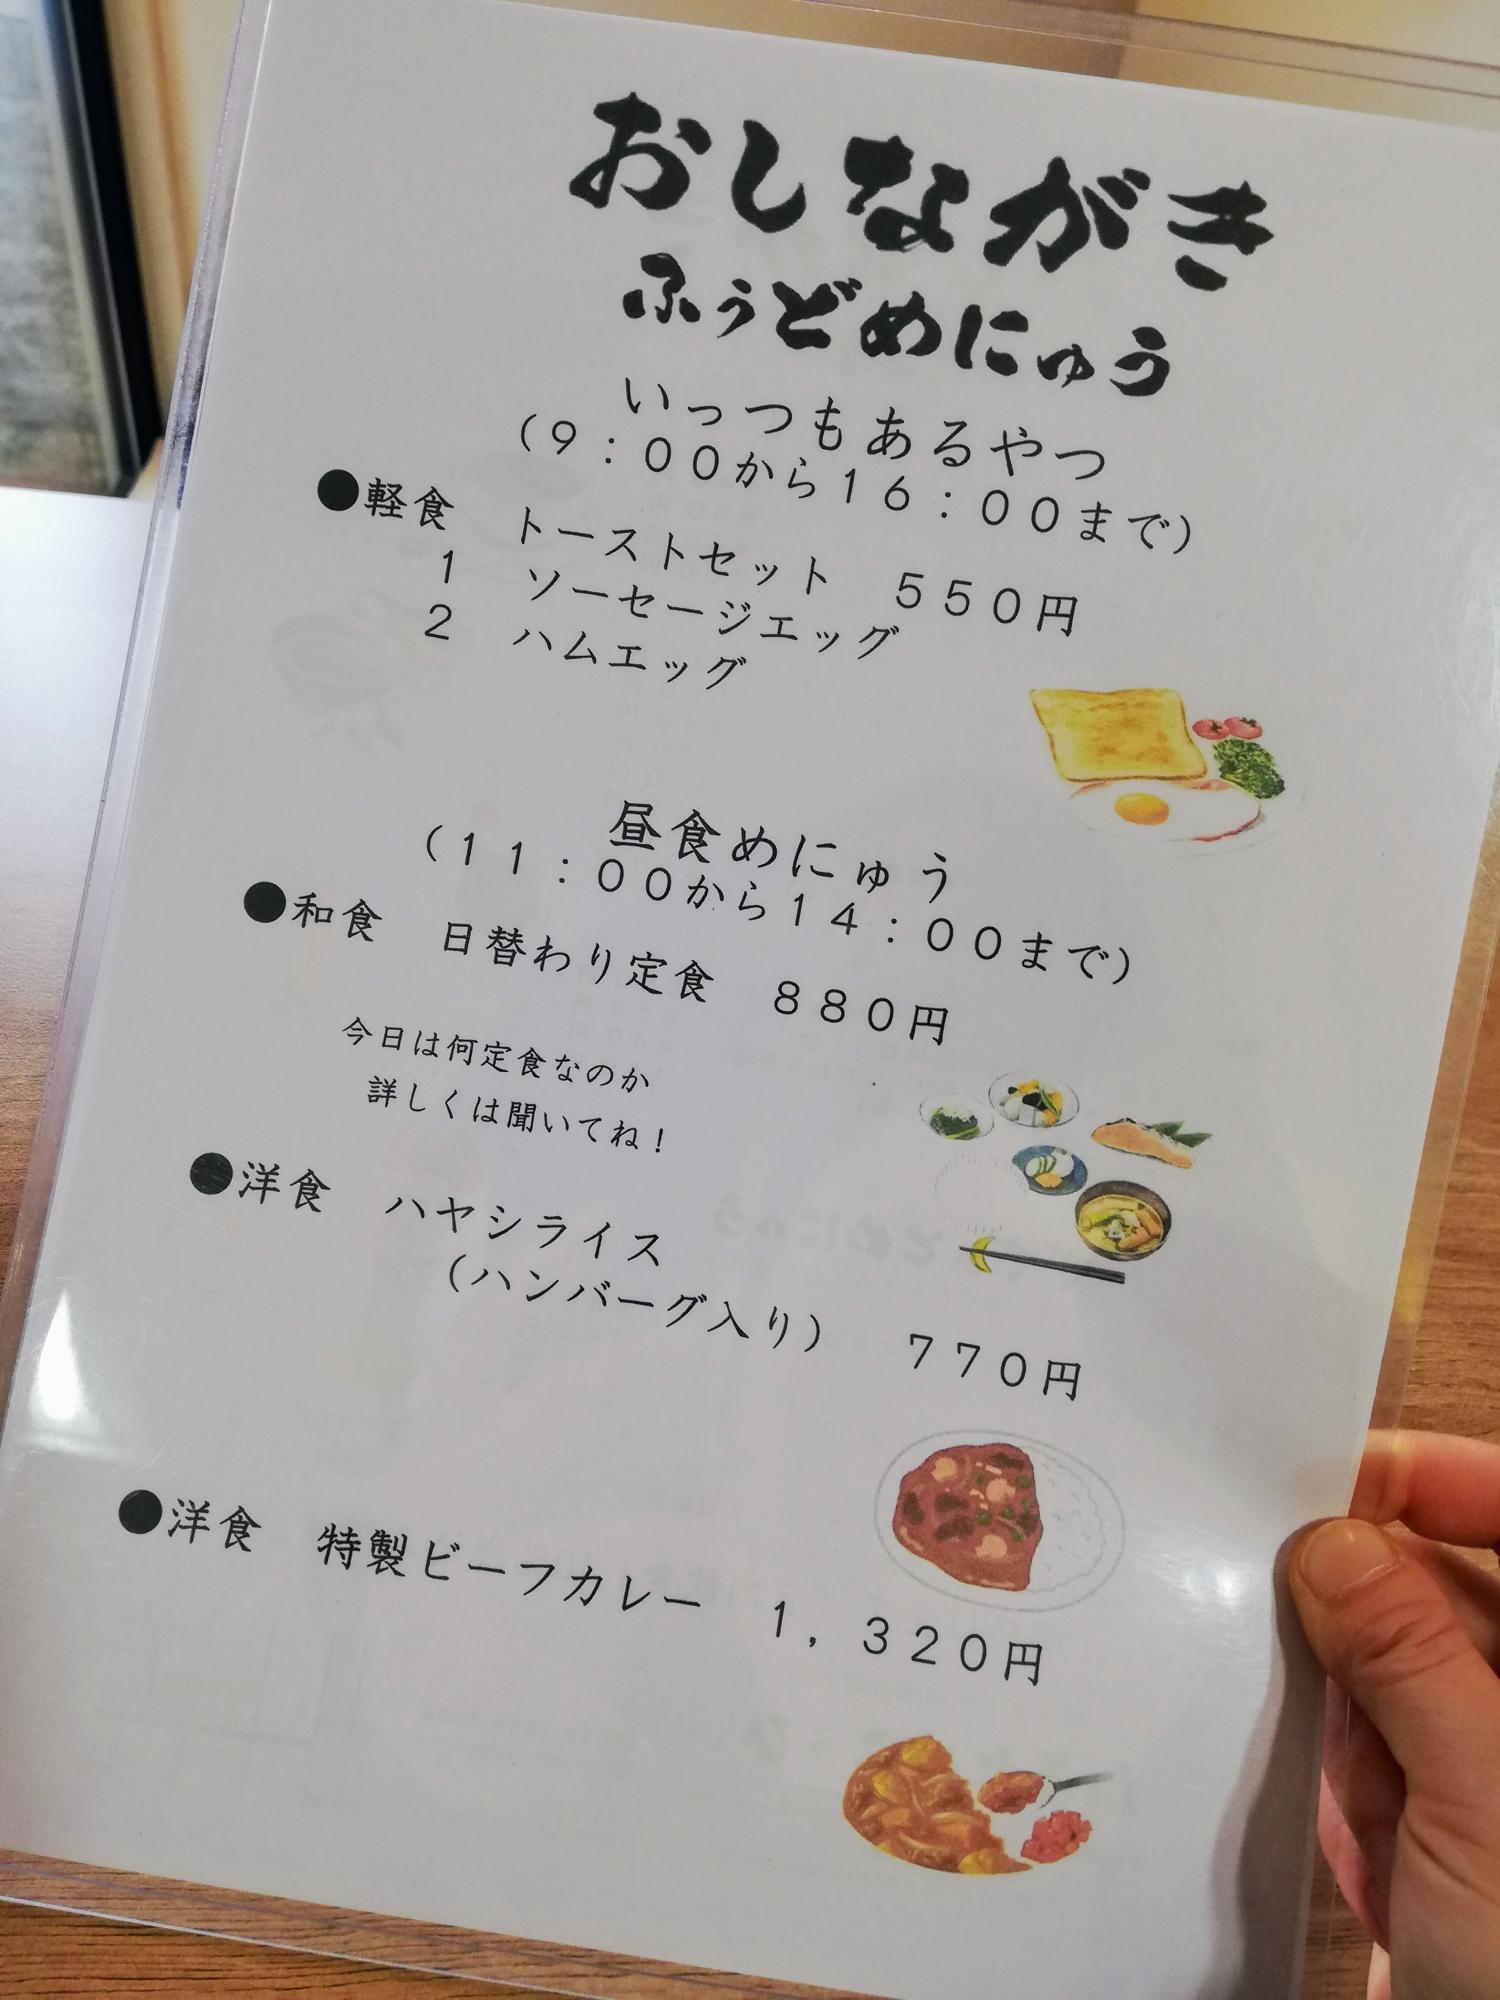 おしながき
ふぅどめにゅう
いっつもあるやつ
（９：００から１６：００まで）
●軽食　トーストセット　５５０円
１　ソーセージエッグ
２　ハムエッグ
昼食めにゅう
（１１：００から１４：００まで）
●和食　日替わり定食　８８０円
今日は何定食なのか
詳しくは聞いてね！
●洋食　ハヤシライス
（ハンバーグ入り）　７７０円
●洋食　特製ビーフカレー　１，３２０円